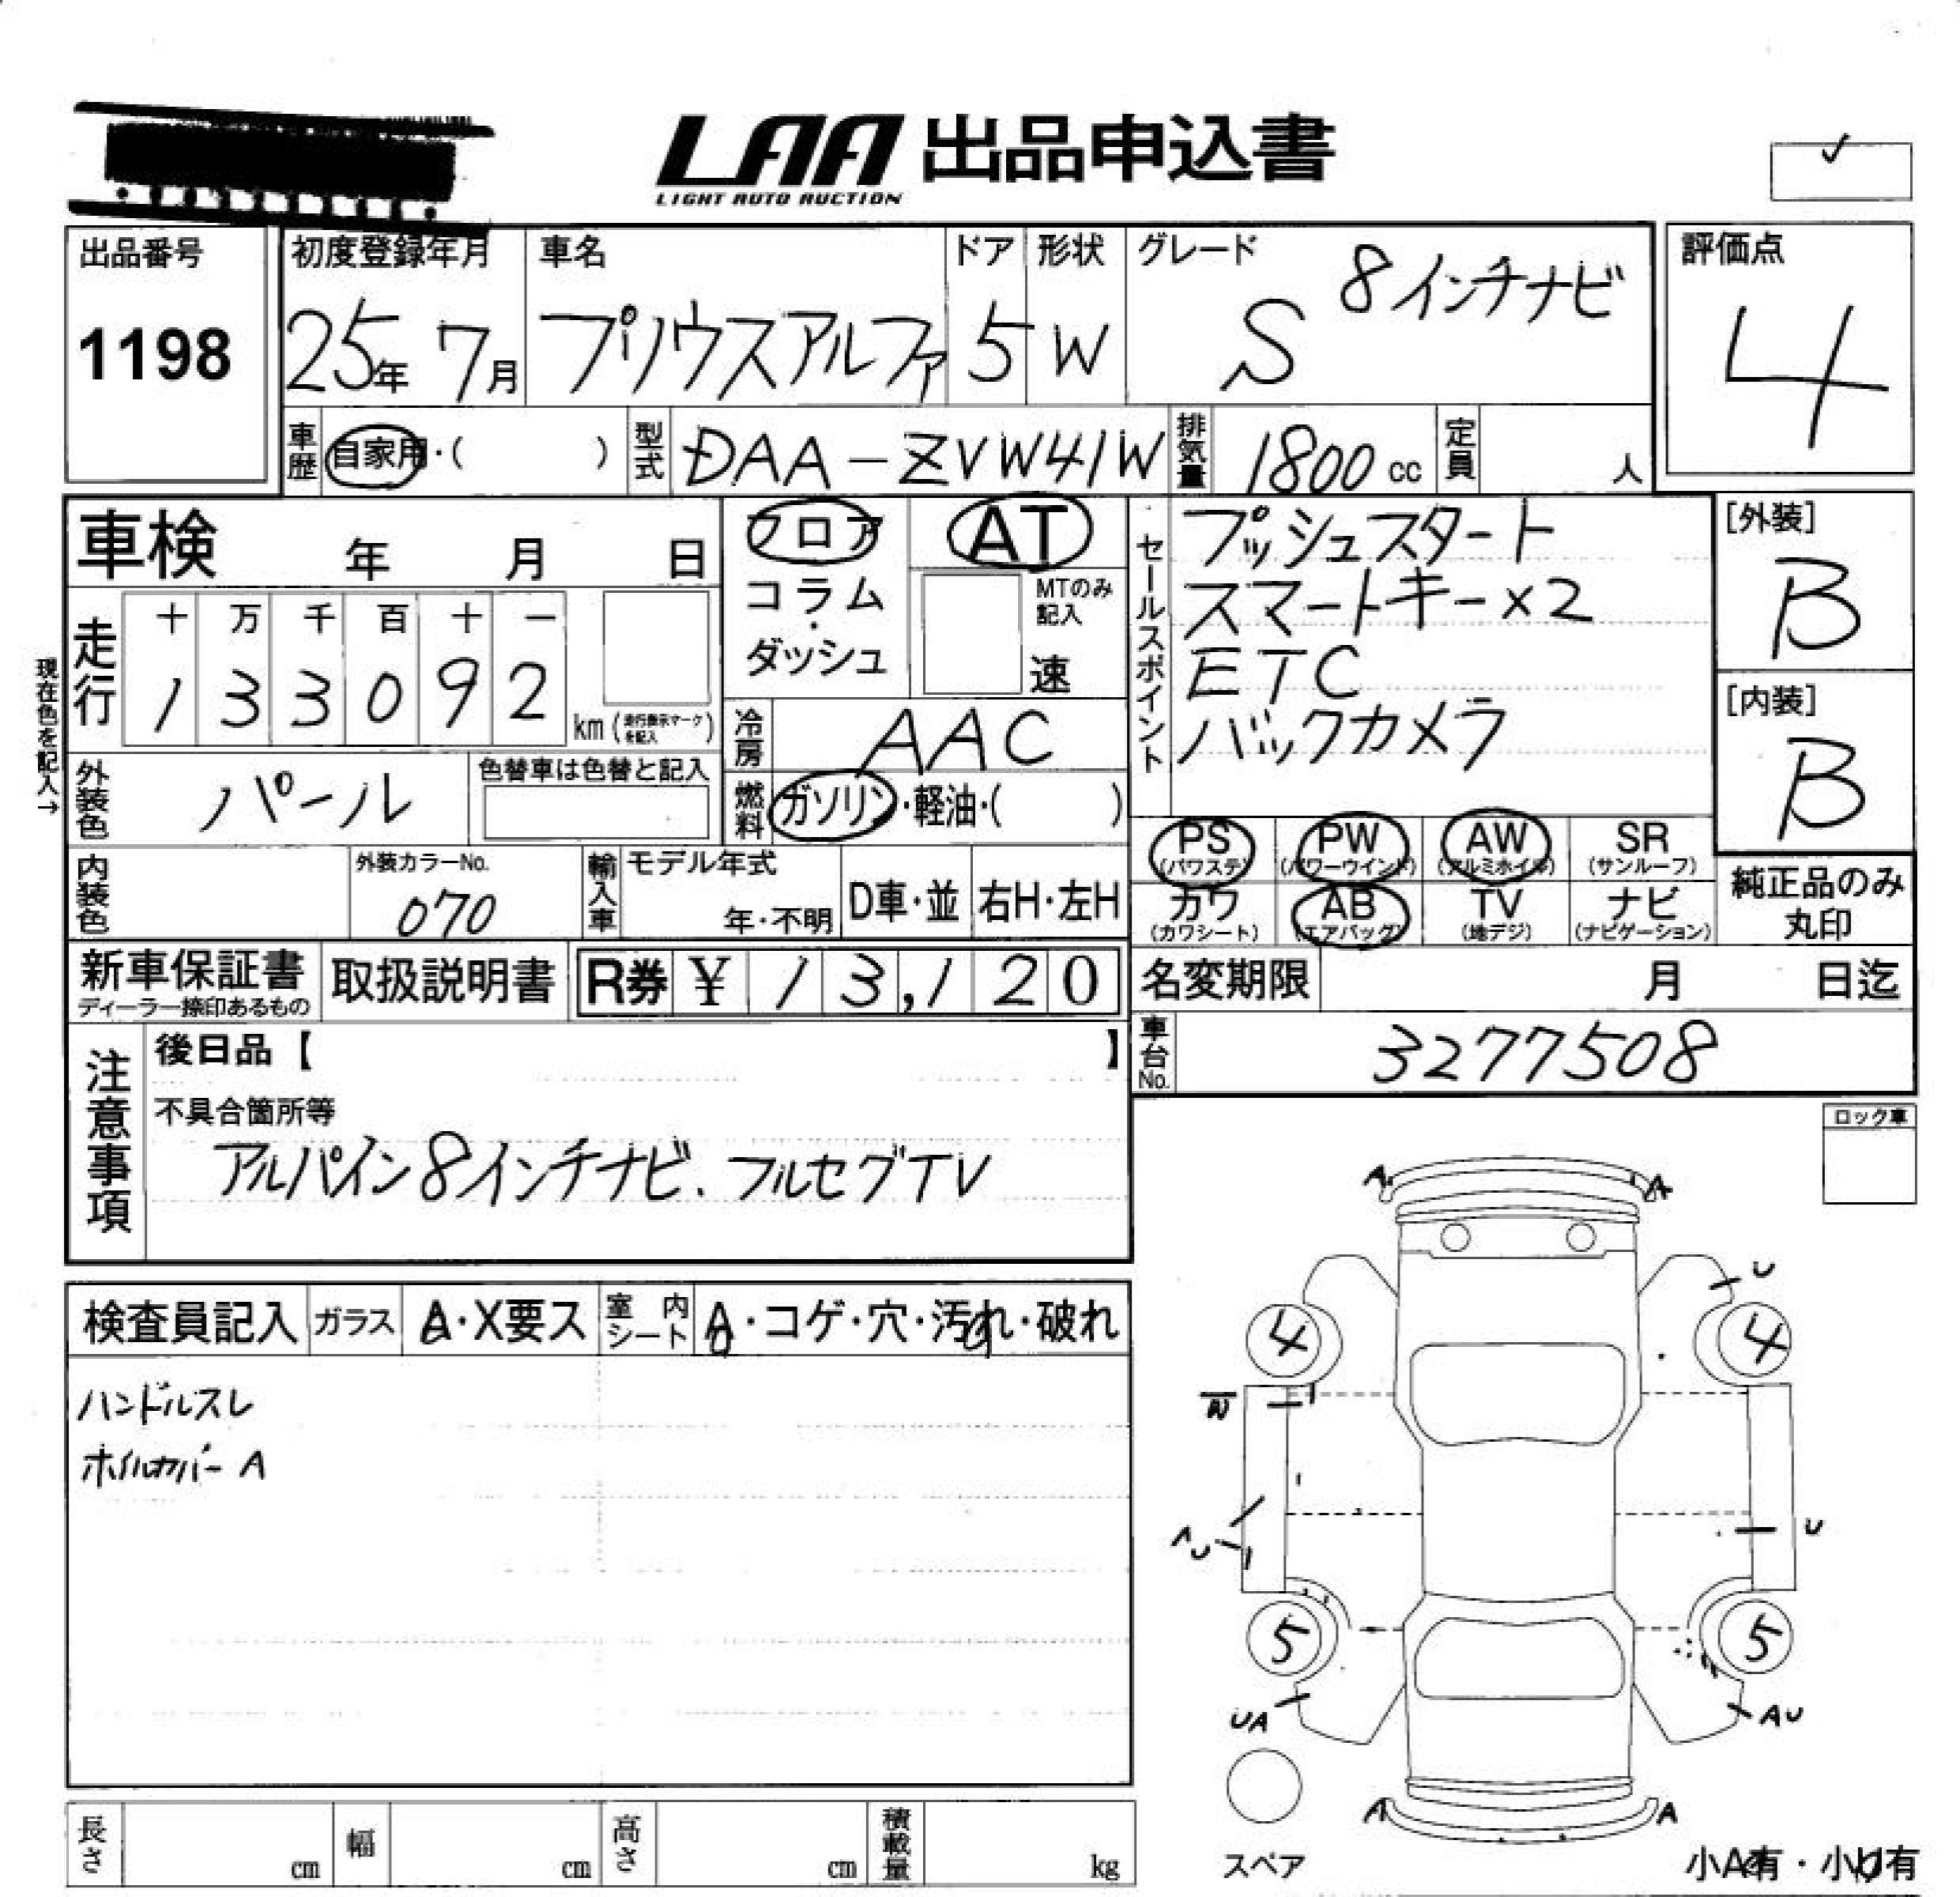 LAA 出品申込書
LIGHT AUTO AUCTION
✓
出品番号
1198
初度登録年月
25年 7月
車名
プリウスアルファ
ドア
5
形状
W
グレード
S 8インチナビ
評価点
4
車歴 自家用・( )
型式 DAA-ZVW41W
排気量 1800 cc
定員 人
車検 年 月 日
フロア
コラム
・
ダッシュ
AT
MTのみ
記入
速
セールスポイント
プッシュスタート
スマートキー×2
ETC
バックカメラ
[外装]
B
[内装]
B
現在色を記入→
走行
十 万 千 百 十 一
1 3 3 0 9 2
km (走行表示マークを記入)
冷房 AAC
外装色 パール
色替車は色替と記入
燃料 ガソリン・軽油・( )
PS (パワステ)
PW (パワーウインド)
AW (アルミホイル)
SR (サンルーフ)
カワ (カワシート)
AB (エアバッグ)
TV (地デジ)
ナビ (ナビゲーション)
純正品のみ
丸印
内装色
外装カラーNo.
070
輸入車
モデル年式
年・不明
D車・並
右H・左H
新車保証書
ディーラー捺印あるもの
取扱説明書
R券 ¥ 13,120
名変期限 月 日迄
車台No. 3277508
注意事項
後日品【 】
不具合箇所等
アルパイン8インチナビ. フルセグTV
ロック車
検査員記入
ガラス A・X要ス
室内シート A・コゲ・穴・汚れ・破れ
ハンドルスレ
ホイルカバーA
A A
U
4 4
W
AU U
5 5
UA AU
A A
スペア
小A有・小U有
長さ cm
幅 cm
高さ cm
積載量 kg